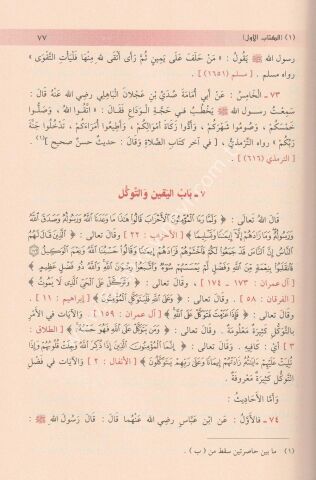 (١) [الكتاب الأول] ٧٧
رسول الله ﷺ يَقُولُ: «مَنْ حَلَفَ عَلَى يَمِينٍ ثُمَّ رَأَى أَتْقَى للهِ مِنْهَا فَلْيَأْتِ التَّقْوَى»
رواه مسلم. [مسلم (١٦٥١)]
٧٣ - الْخَامِسُ: عَنْ أَبِي أُمَامَةَ صُدَيِّ بْنِ عَجْلَانَ الْبَاهِلِي رضي الله عَنْهُ قَالَ:
سَمِعْتُ رسول الله ﷺ يَخْطُبُ فِي حَجَّةِ الْوَدَاعِ فَقَالَ: «اتَّقُوا اللهَ، وَصَلُّوا
خَمْسَكُمْ، وَصُومُوا شَهْرَكُمْ، وَأَدُّوا زَكَاةَ أَمْوَالِكُمْ، وَأَطِيعُوا أُمَرَاءَكُمْ، تَدْخُلُوا جَنَّةَ
رَبِّكُمْ» رواه التِّرْمِذِي، [فِي آخر كتاب الصَّلاةِ وَقَالَ: حديث حسنٌ صحيح](١)
[الترمذي (٦١٦)]
٧ - بَابُ اليَقين وَالتَّوَكُّل
قَالَ اللهُ تَعَالَى: ﴿ وَلَمَّا رَءَا الْمُؤْمِنُونَ الْأَحْزَابَ قَالُوا هَٰذَا مَا وَعَدَنَا اللَّهُ وَرَسُولُهُ وَصَدَقَ اللَّهُ
وَرَسُولُهُ وَمَا زَادَهُمْ إِلَّا إِيمَانًا وَتَسْلِيمًا ﴾ [الأحزاب: ٢٢] وقال تعالى: ﴿ الَّذِينَ قَالَ لَهُمُ
النَّاسُ إِنَّ النَّاسَ قَدْ جَمَعُوا لَكُمْ فَاخْشَوْهُمْ فَزَادَهُمْ إِيمَانًا وَقَالُوا حَسْبُنَا اللَّهُ وَنِعْمَ الْوَكِيلُ
فَانْقَلَبُوا بِنِعْمَةٍ مِنَ اللَّهِ وَفَضْلٍ لَمْ يَمْسَسْهُمْ سُوءٌ وَاتَّبَعُوا رِضْوَانَ اللَّهِ وَاللَّهُ ذُو فَضْلٍ عَظِيمٍ ﴾
[آل عمران: ١٧٣ - ١٧٤]. وقال تعالى: ﴿ وَتَوَكَّلْ عَلَى الْحَيِّ الَّذِي لَا يَمُوتُ ﴾
[الفرقان: ٥٨]. وقال تعالى: ﴿ وَعَلَى اللَّهِ فَلْيَتَوَكَّلِ الْمُؤْمِنُونَ ﴾ [إبراهيم: ١١].
وقال تعالى: ﴿ فَإِذَا عَزَمْتَ فَتَوَكَّلْ عَلَى اللَّهِ ﴾ [آل عمران: ١٥٩] وَالآيَاتُ فِي الأَمْرِ
بِالتَّوَكُّلِ كَثِيرَةٌ مَعْلُومَةٌ. وقال تعالى: ﴿ وَمَنْ يَتَوَكَّلْ عَلَى اللَّهِ فَهُوَ حَسْبُهُ ﴾ [الطلاق:
٣] أي: كافيه. وقال تعالى: ﴿ إِنَّمَا الْمُؤْمِنُونَ الَّذِينَ إِذَا ذُكِرَ اللَّهُ وَجِلَتْ قُلُوبُهُمْ وَإِذَا
تُلِيَتْ عَلَيْهِمْ ءَايَاتُهُ زَادَتْهُمْ إِيمَانًا وَعَلَى رَبِّهِمْ يَتَوَكَّلُونَ ﴾ [الأنفال: ٢] وَالآيَات فِي فَضْلِ
التَّوَكُّلِ كَثِيرَةٌ مَعْرُوفَةٌ.
وَأَمَّا الأَحَادِيثُ:
٧٤ - فَالأَوَّلُ: عَن ابْنِ عبَّاسٍ رضي الله عَنْهُمَا قَالَ: قَالَ رَسُولُ اللهِ ﷺ:
(١) ما بين حاصرتين سقط من (ب).